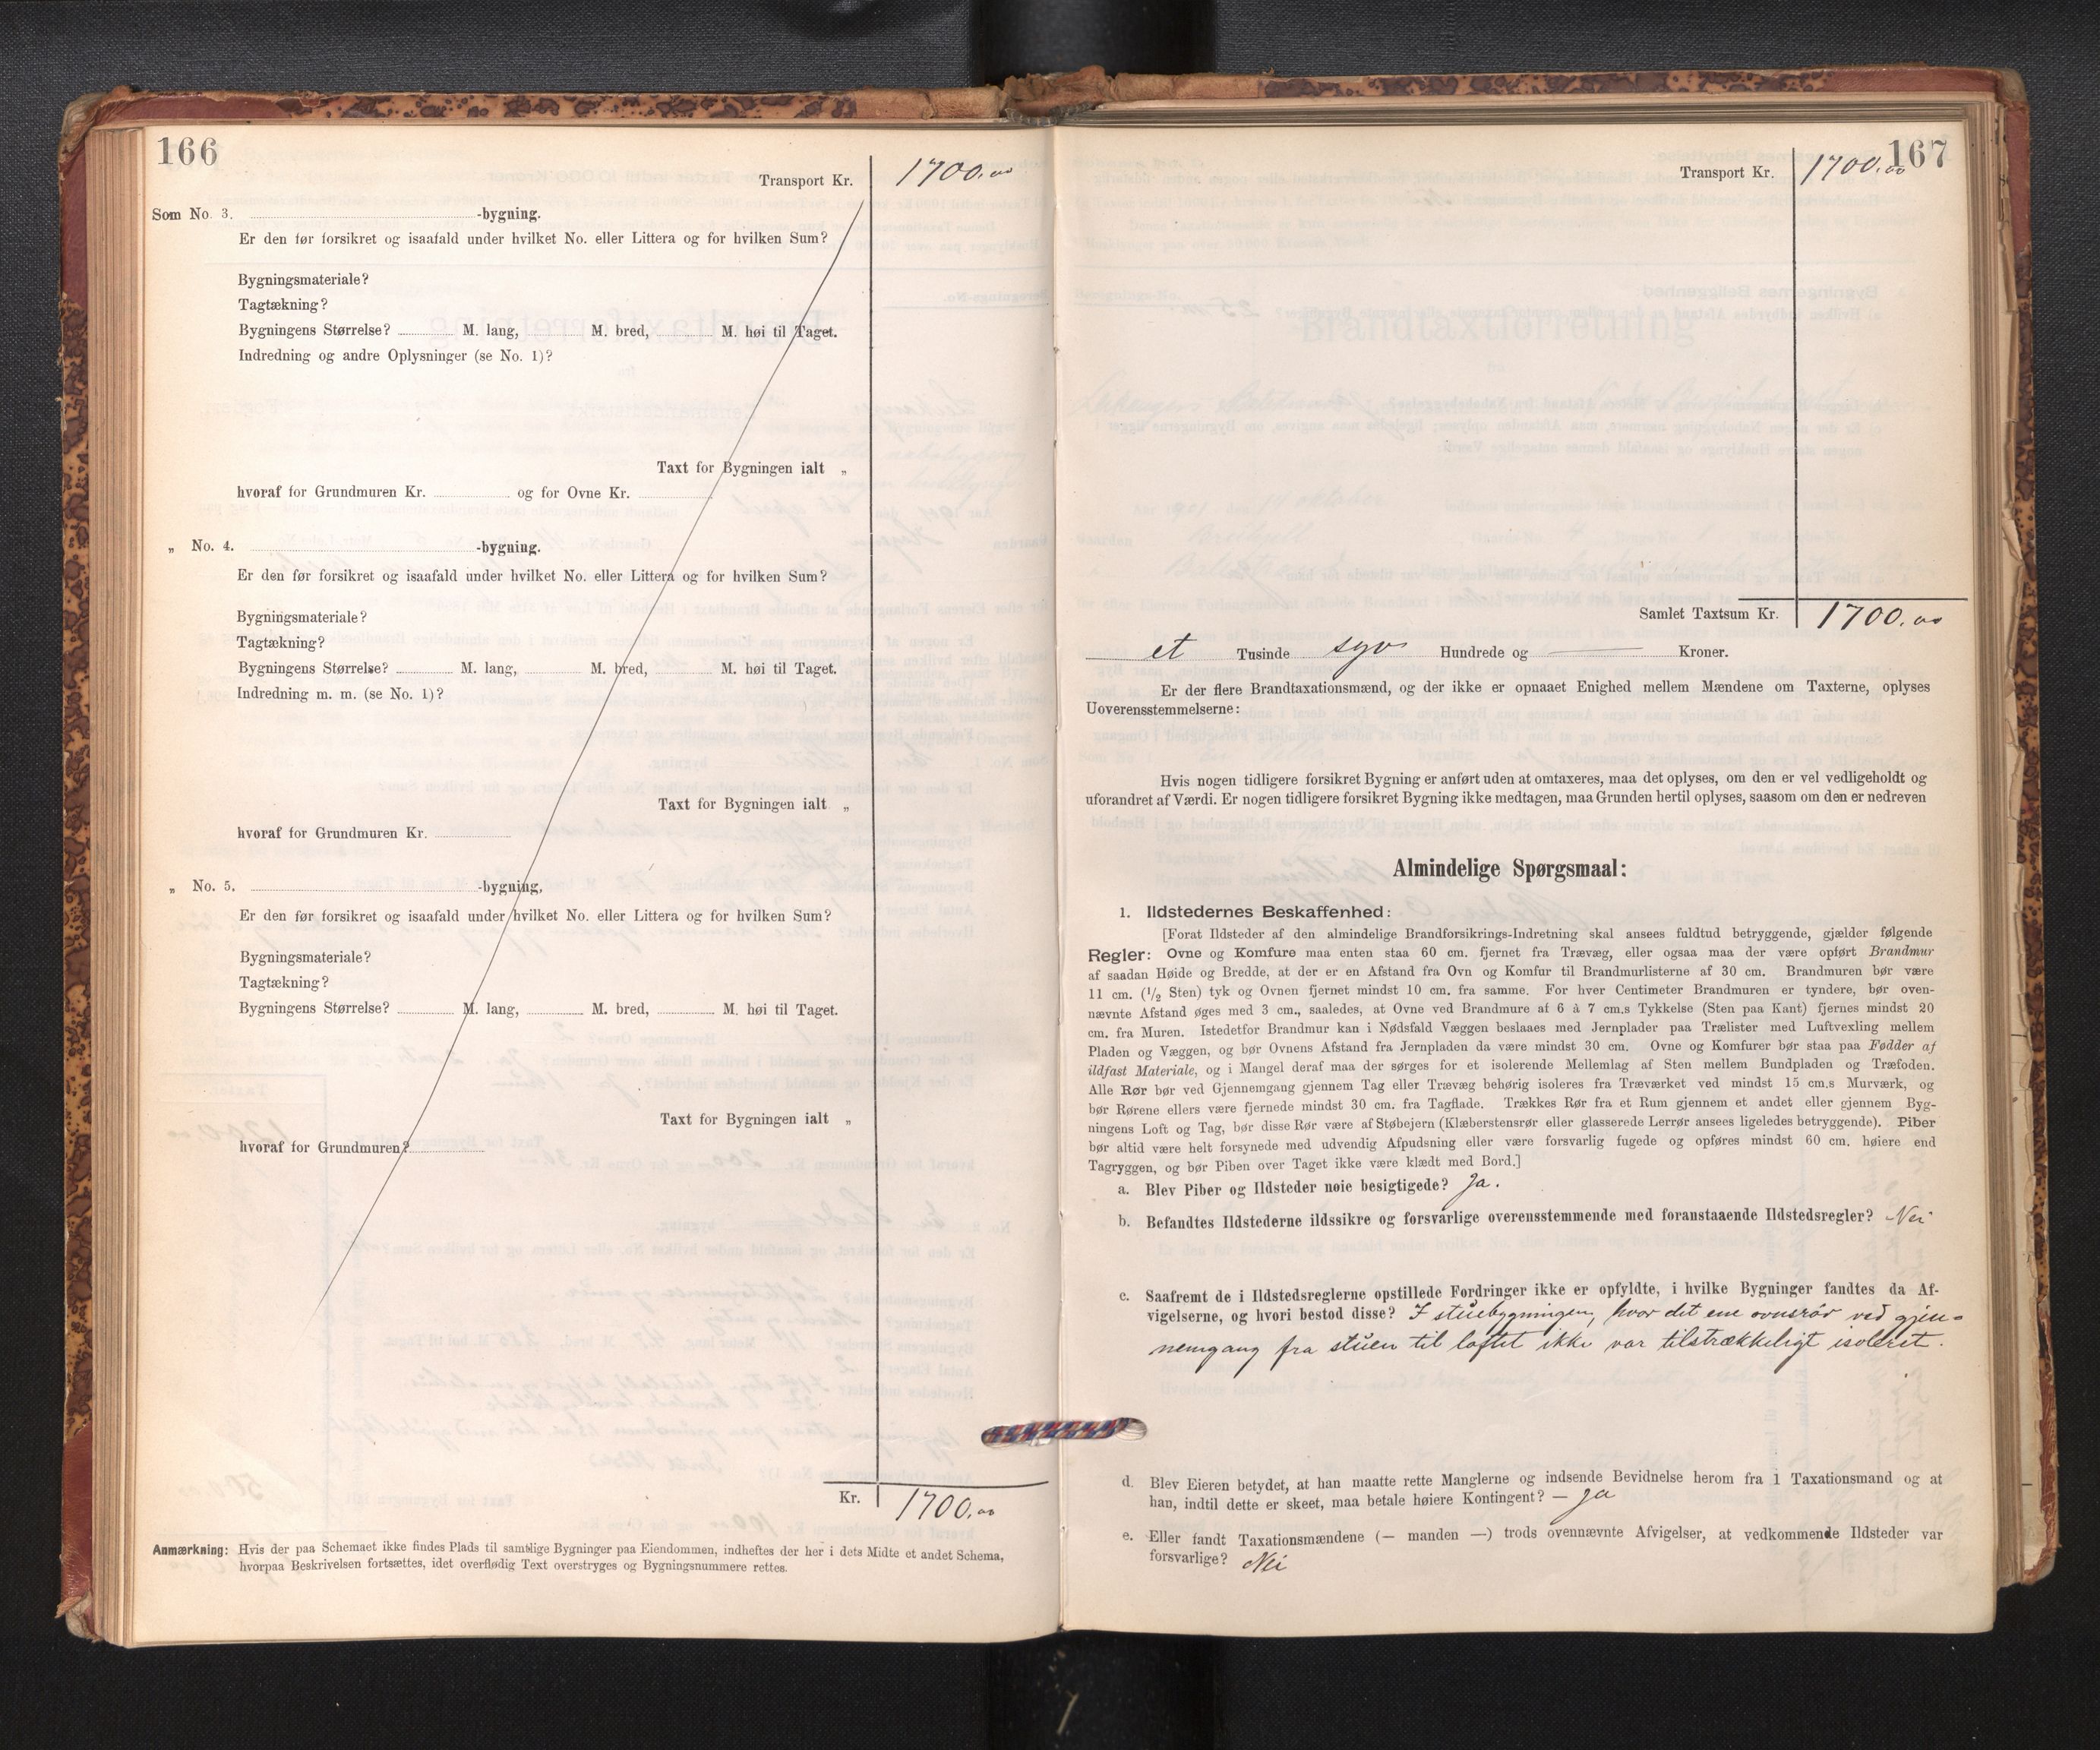 166
Transport Kr. 1700.00
Som No. 3. -bygning.
Er den før forsikret og isaafald under hvilket No. eller Littera og for hvilken Sum?
Bygningsmateriale?
Tagtækning?
Bygningens Størrelse? M. lang, M. bred, M. høi til Taget.
Indredning og andre Oplysninger (se No. 1)?
Taxt for Bygningen ialt „
hvoraf for Grundmuren Kr. og for Ovne Kr.
„ No. 4. -bygning.
Er den før forsikret og isaafald under hvilket No. eller Littera og for hvilken Sum?
Bygningsmateriale?
Tagtækning?
Bygningens Størrelse? M. lang, M. bred, M. høi til Taget.
Indredning m. m. (se No. 1)?
Taxt for Bygningen ialt „
hvoraf for Grundmuren Kr.
„ No. 5. -bygning,
Er den før forsikret og isaafald under hvilket No. eller Littera og for hvilken Sum?
Bygningsmateriale?
Tagtækning?
Bygningens Størrelse? M. lang, M. bred, M. høi til Taget.
Taxt for Bygningen ialt „
hvoraf for Grundmuren?
Kr. 1700.00
Anmærkning: Hvis der paa Schemaet ikke findes Plads til samtlige Bygninger paa Eiendommen, indheftes der her i dets Midte et andet Schema,
hvorpaa Beskrivelsen fortsættes, idet overflødig Text overstryges og Bygningsnummere rettes.
167
Transport Kr. 1700.00
Samlet Taxtsum Kr. 1700.00
et Tusinde syv Hundrede og — Kroner.
Er der flere Brandtaxationsmænd, og der ikke er opnaaet Enighed mellem Mændene om Taxterne, oplyses
Uoverensstemmelserne:
Hvis nogen tidligere forsikret Bygning er anført uden at omtaxeres, maa det oplyses, om den er vel vedligeholdt og
uforandret af Værdi. Er nogen tidligere forsikret Bygning ikke medtagen, maa Grunden hertil oplyses, saasom om den er nedreven
Almindelige Spørgsmaal:
1. Ildstedernes Beskaffenhed:
[Forat Ildsteder af den almindelige Brandforsikrings-Indretning skal ansees fuldtud betryggende, gjælder følgende
Regler: Ovne og Komfure maa enten staa 60 cm. fjernet fra Trævæg, eller ogsaa maa der være opført Brandmur
af saadan Høide og Bredde, at der er en Afstand fra Ovn og Komfur til Brandmurlisterne af 30 cm. Brandmuren bør være
11 cm. (1/2 Sten) tyk og Ovnen fjernet mindst 10 cm. fra samme. For hver Centimeter Brandmuren er tyndere, bør oven-
nævnte Afstand øges med 3 cm., saaledes, at Ovne ved Brandmure af 6 à 7 cm.s Tykkelse (Sten paa Kant) fjernes mindst 20
cm. fra Muren. Istedetfor Brandmur kan i Nødsfald Væggen beslaaes med Jernplader paa Trælister med Luftvexling mellem
Pladen og Væggen, og bør Ovnens Afstand fra Jernpladen da være mindst 30 cm. Ovne og Komfurer bør staa paa Fødder af
ildfast Materiale, og i Mangel deraf maa der sørges for et isolerende Mellemlag af Sten mellem Bundpladen og Træfoden.
Alle Rør bør ved Gjennemgang gjennem Tag eller Trævæg behørig isoleres fra Træværket ved mindst 15 cm.s Murværk, og
bør Rørene ellers være fjernede mindst 30 cm. fra Tagflade. Trækkes Rør fra et Rum gjennem et andet eller gjennem Byg-
ningens Loft og Tag, bør disse Rør være af Støbejern (Klæberstensrør eller glasserede Lerrør ansees ligeledes betryggende). Piber
bør altid være helt forsynede med udvendig Afpudsning eller være forsvarlig fugede og opføres mindst 60 cm. høiere end
Tagryggen, og bør Piben over Taget ikke være klædt med Bord.]
a. Blev Piber og Ildsteder nøie besigtigede? Ja.
b. Befandtes Ildstederne ildssikre og forsvarlige overensstemmende med foranstaaende Ildstedsregler? Nei
c. Saafremt de i Ildstedsreglerne opstillede Fordringer ikke er opfyldte, i hvilke Bygninger fandtes da Af-
vigelserne, og hvori bestod disse? I stuebygningen, hvor det ene ovnsrör ved gjen-
nemgang fra stuen til loftet ikke var tilstrækkeligt isoleret.
d. Blev Eieren betydet, at han maatte rette Manglerne og indsende Bevidnelse herom fra 1 Taxationsmand og at
han, indtil dette er skeet, maa betale høiere Kontingent? — Ja
e. Eller fandt Taxationsmændene (— manden —) trods ovennævnte Afvigelser, at vedkommende Ildsteder var
forsvarlige? Nei